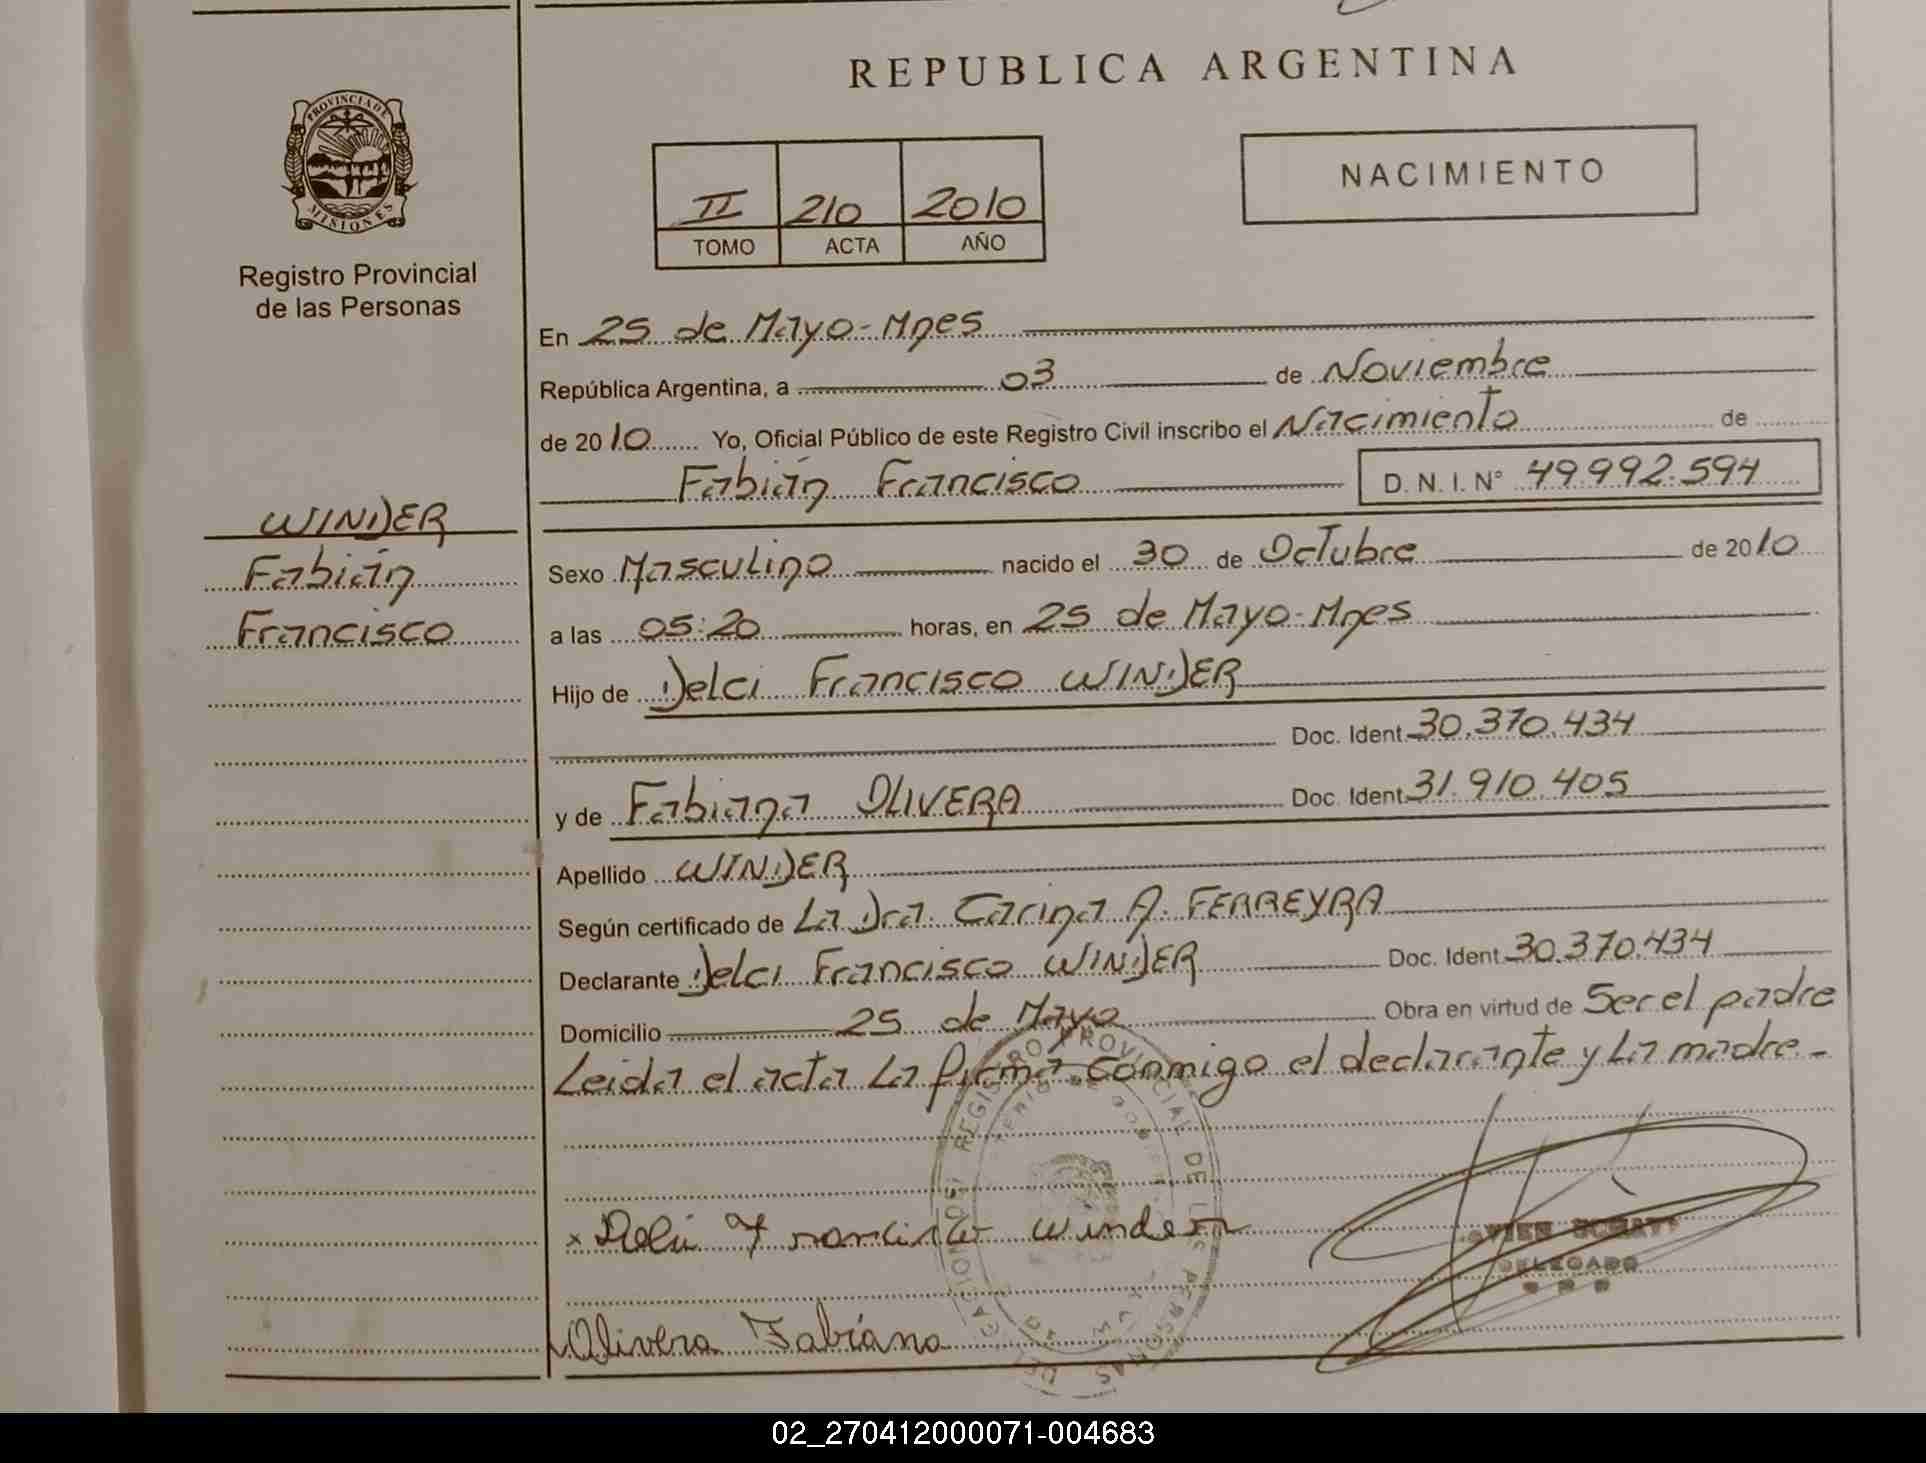 REPUBLICA ARGENTINA
PROVINCIA DE
MISIONES
Registro Provincial
de las Personas
II 210 2010
TOMO ACTA AÑO
NACIMIENTO
En 25 de Mayo-Mnes
República Argentina, a 03 de Noviembre
de 2010 Yo, Oficial Público de este Registro Civil inscribo el Nacimiento de
Fabián Francisco D.N.I.N° 49.992.594
WINDER
Fabián
Francisco
Sexo Masculino nacido el 30 de Octubre de 2010
a las 05:20 horas, en 25 de Mayo-Mnes
Hijo de Delci Francisco WINDER
Doc. Ident. 30.370.434
y de Fabiana OLIVERA Doc. Ident. 31.910.405
Apellido WINDER
Según certificado de La Dra. Carina A. FERREYRA
Declarante Delci Francisco WINDER Doc. Ident. 30.370.434
Domicilio 25 de Mayo Obra en virtud de Ser el padre
Leida el acta La firma conmigo el declarante y La madre-
REGISTRO PROVINCIAL DE LAS PERSONAS
winder
DELEGADO
Olivera Fabiana
02_270412000071-004683